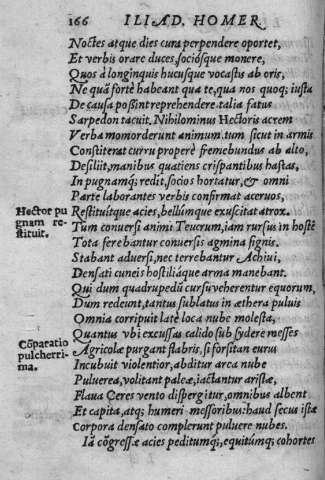 166 ILIAD. HOMER.
Noctes atque dies cura perpendere oportet,
Et verbis orare duces, sociósque monere,
Quos à longinquis hucusque vocastis ab oris,
Ne quā fortè habeant qua te, qua nos quoq; iusta
De causa poßint reprehendere. talia fatus
Sarpedon tacuit. Nihilominus Hectoris acrem
Verba momorderunt animum. tum sicut in armis
Constiterat curru properè fremebundus ab alto,
Desiliit, manibus quatiens crispantibus hastas,
In pugnamq; redit, socios hortatur, & omni
Parte laborantes verbis confirmat aceruos,
Hector pu
gnam re-
stituit.
Restituitque acies, bellúmque exuscitat atrox.
Tum conuersi animi Teucrum, iam rursus in hostē
Tota ferebantur conuersis agmina signis.
Stabant aduersi, nec terrebantur Achiui,
Densati cuneis hostiliáque arma manebant.
Qui dum quadrupedū cursu veherentur equorum,
Dum redeunt, tantus sublatus in æthera puluis
Omnia corripuit latè loca nube molesta,
Quantus vbi excussas calido sub sydere messes
Cōparatio
pulcherri-
ma.
Agricolæ purgant stabris, si forsitan eurus
Incubuit violentior, abditur area nube
Puluerea, volitant paleæ, iactantur aristæ,
Flaua Ceres vento dispergitur, omnibus albent
Et capita, atq; humeri messoribus: haud secus istæ
Corpora densato complerunt puluere nubes.
Iā cōgressæ acies peditumq;, equitúmq; cohortes